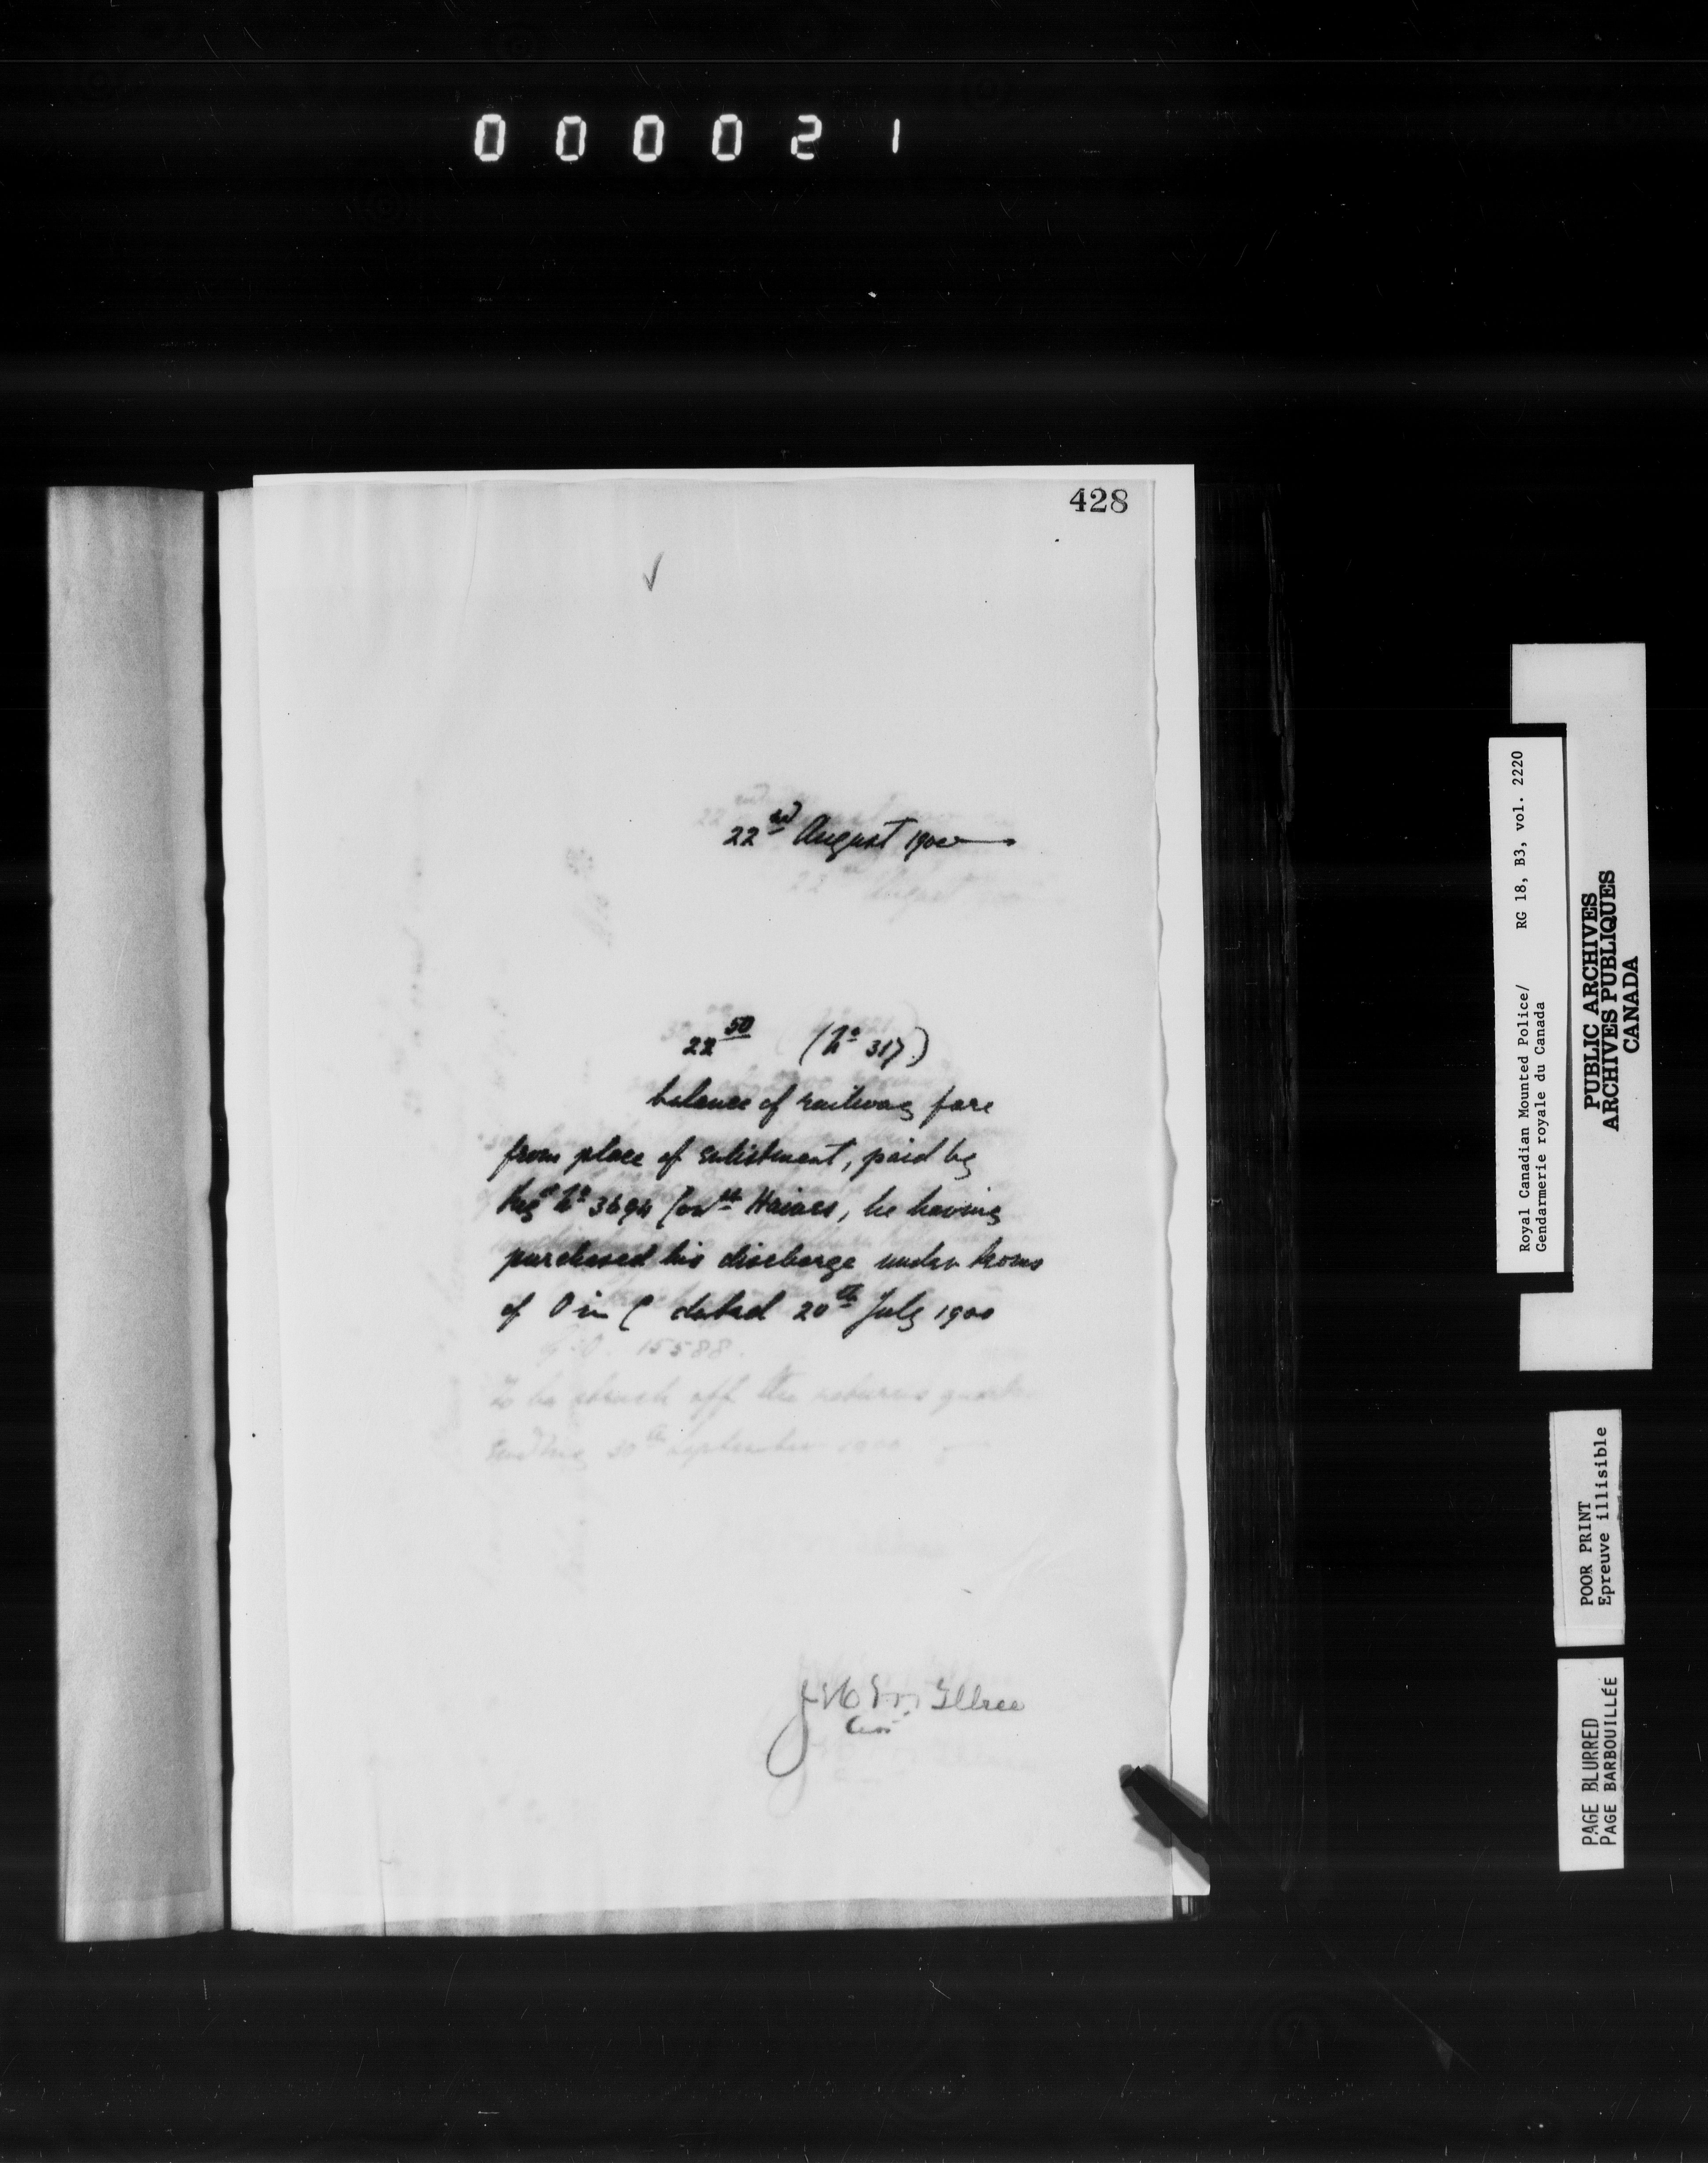 000021
428
22nd August 1900
22 50 (No 317)
balance of railway fare
from place of enlistment, paid by
Regt No 3694 Const Haines, he having
purchased his discharge under terms
of O in C dated 20th July 1900
G.O. 15588.
To be struck off the returns quarter
ending 30th September 1900
McIllree
Royal Canadian Mounted Police/ RG 18, B3, vol. 2220
Gendarmerie royale du Canada
PUBLIC ARCHIVES
ARCHIVES PUBLIQUES
CANADA
POOR PRINT
Epreuve illisible
PAGE BLURRED
PAGE BARBOUILLÉE